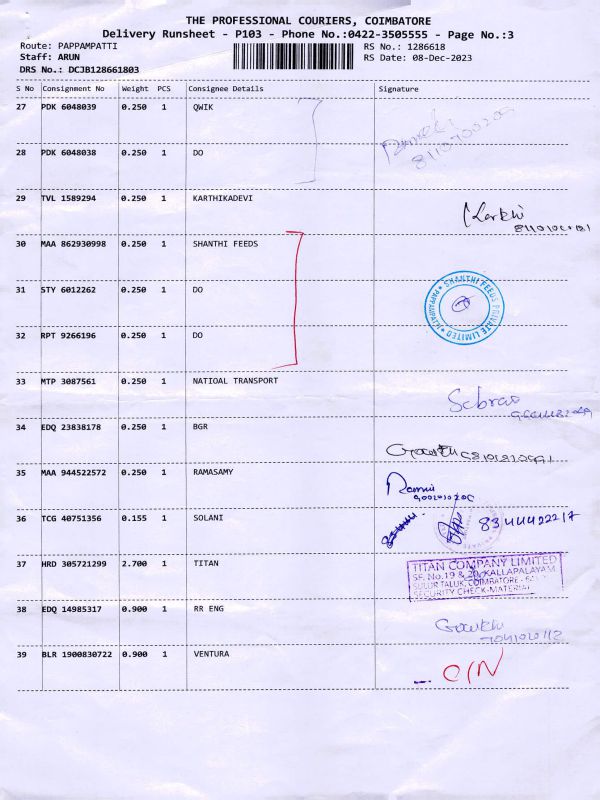 THE PROFESSIONAL COURIERS, COIMBATORE
Delivery Runsheet - P103 - Phone No.:0422-3505555 - Page No.:3
Route: PAPPAMPATTI RS No.: 1286618
Staff: ARUN RS Date: 08-Dec-2023
DRS No.: DCJB128661803
S No Consignment No Weight PCS Consignee Details Signature
27 PDK 6048039 0.250 1 QWIK
28 PDK 6048038 0.250 1 DO
29 TVL 1589294 0.250 1 KARTHIKADEVI
30 MAA 862930998 0.250 1 SHANTHI FEEDS
31 STY 6012262 0.250 1 DO
SHANTHI FEEDS PRIVATE LIMITED
32 RPT 9266196 0.250 1 DO
33 MTP 3087561 0.250 1 NATIOAL TRANSPORT
34 EDQ 23838178 0.250 1 BGR
35 MAA 944522572 0.250 1 RAMASAMY
36 TCG 40751356 0.155 1 SOLANI
37 HRD 305721299 2.700 1 TITAN
TITAN COMPANY LIMITED
SF. No.19 & 20, KALLAPALAYAM
SULUR TALUK, COIMBATORE
SECURITY CHECK-MATERIAL
38 EDQ 14985317 0.900 1 RR ENG
39 BLR 1900830722 0.900 1 VENTURA